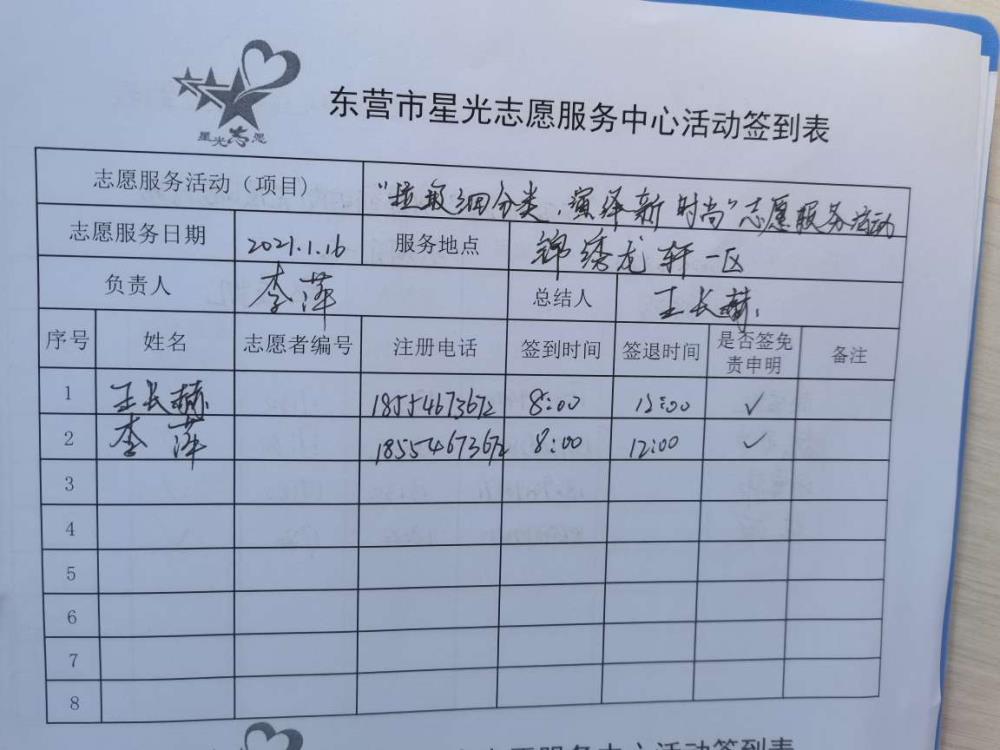 星光志愿
东营市星光志愿服务中心活动签到表
志愿服务活动（项目） "垃圾细分类，演绎新时尚"志愿服务活动
志愿服务日期 2021.1.16 服务地点 锦绣龙轩一区
负责人 李萍 总结人 王长赫
序号 姓名 志愿者编号 注册电话 签到时间 签退时间 是否签免责申明 备注
1 王长赫 18554673672 8:00 12:00 ✓
2 李萍 18554673672 8:00 12:00 ✓
3
4
5
6
7
8
服务中心活动签到表